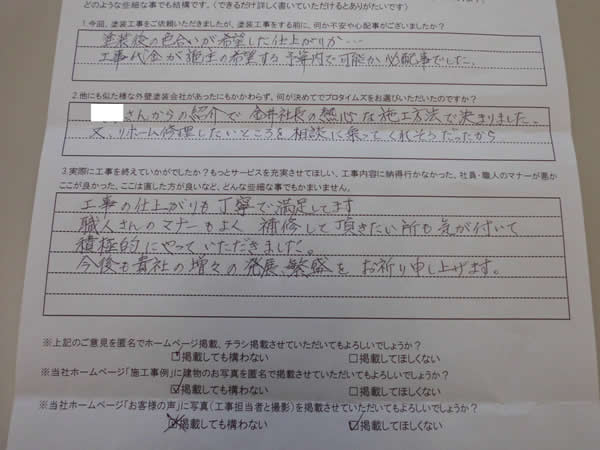 どのような些細な事でも結構です。（できるだけ詳しく書いていただけるとありがたいです）
1.今回、塗装工事をご依頼いただきましたが、塗装工事をする前に、何か不安や心配事がございましたか？
塗装後の色合いが希望した仕上がりか…
工事代金が施主の希望する予算内で可能か心配事でした。
2.他にも似た様な外壁塗装会社があったにもかかわらず、何が決めてでプロタイムズをお選びいただいたのですか？
さんからの紹介で金井社長の熱心な施工方法で決まりました。
又、リホーム修理したいところを相談に乗ってくれそうだったから
3.実際に工事を終えていかがでしたか？もっとサービスを充実させてほしい、工事内容に納得行かなかった、社員・職人のマナーが悪か
ここが良かった、ここは直した方が良いなど、どんな些細な事でもかまいません。
工事の仕上がりも丁寧で満足してます
職人さんのマナーもよく 補修して頂きたい所も気が付いて
積極的にやっていただきました。
今後も貴社の増々の発展繁盛をお祈り申し上げます。
※上記のご意見を匿名でホームページ掲載、チラシ掲載させていただいてもよろしいでしょうか？
☑掲載しても構わない □掲載してほしくない
※当社ホームページ「施工事例」に建物のお写真を匿名で掲載させていただいてもよろしいでしょうか？
☑掲載しても構わない □掲載してほしくない
※当社ホームページ「お客様の声」に写真（工事担当者と撮影）を掲載させていただいてもよろしいでしょうか？
掲載しても構わない ☑掲載してほしくない